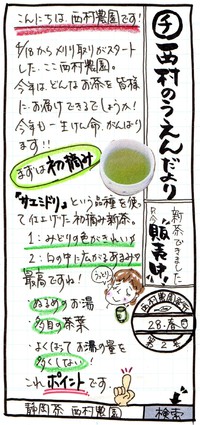 こんにちは、西村農園です!
4/18から刈り取りがスタート
した、ここ西村農園。
今年は、どんなお茶を皆様
にお届けできるでしょうか!
今年も一生けん命、がんばり
ます!!
まずは初摘み
"サエミドリ"という品種を使っ
て仕上げた初摘み新茶。
1:みどりの色がきれい!!
2:口の中に広がるあまみが
最高ですね!
うっとり
・ぬるめのお湯
・多目の茶葉
・よくばってお湯の量を
多くしない!
これ、ポイントです。
静岡茶 西村農園
検索
チ 西村のうえんだより
新茶できました
販売中!
西村農園
28.春
第2